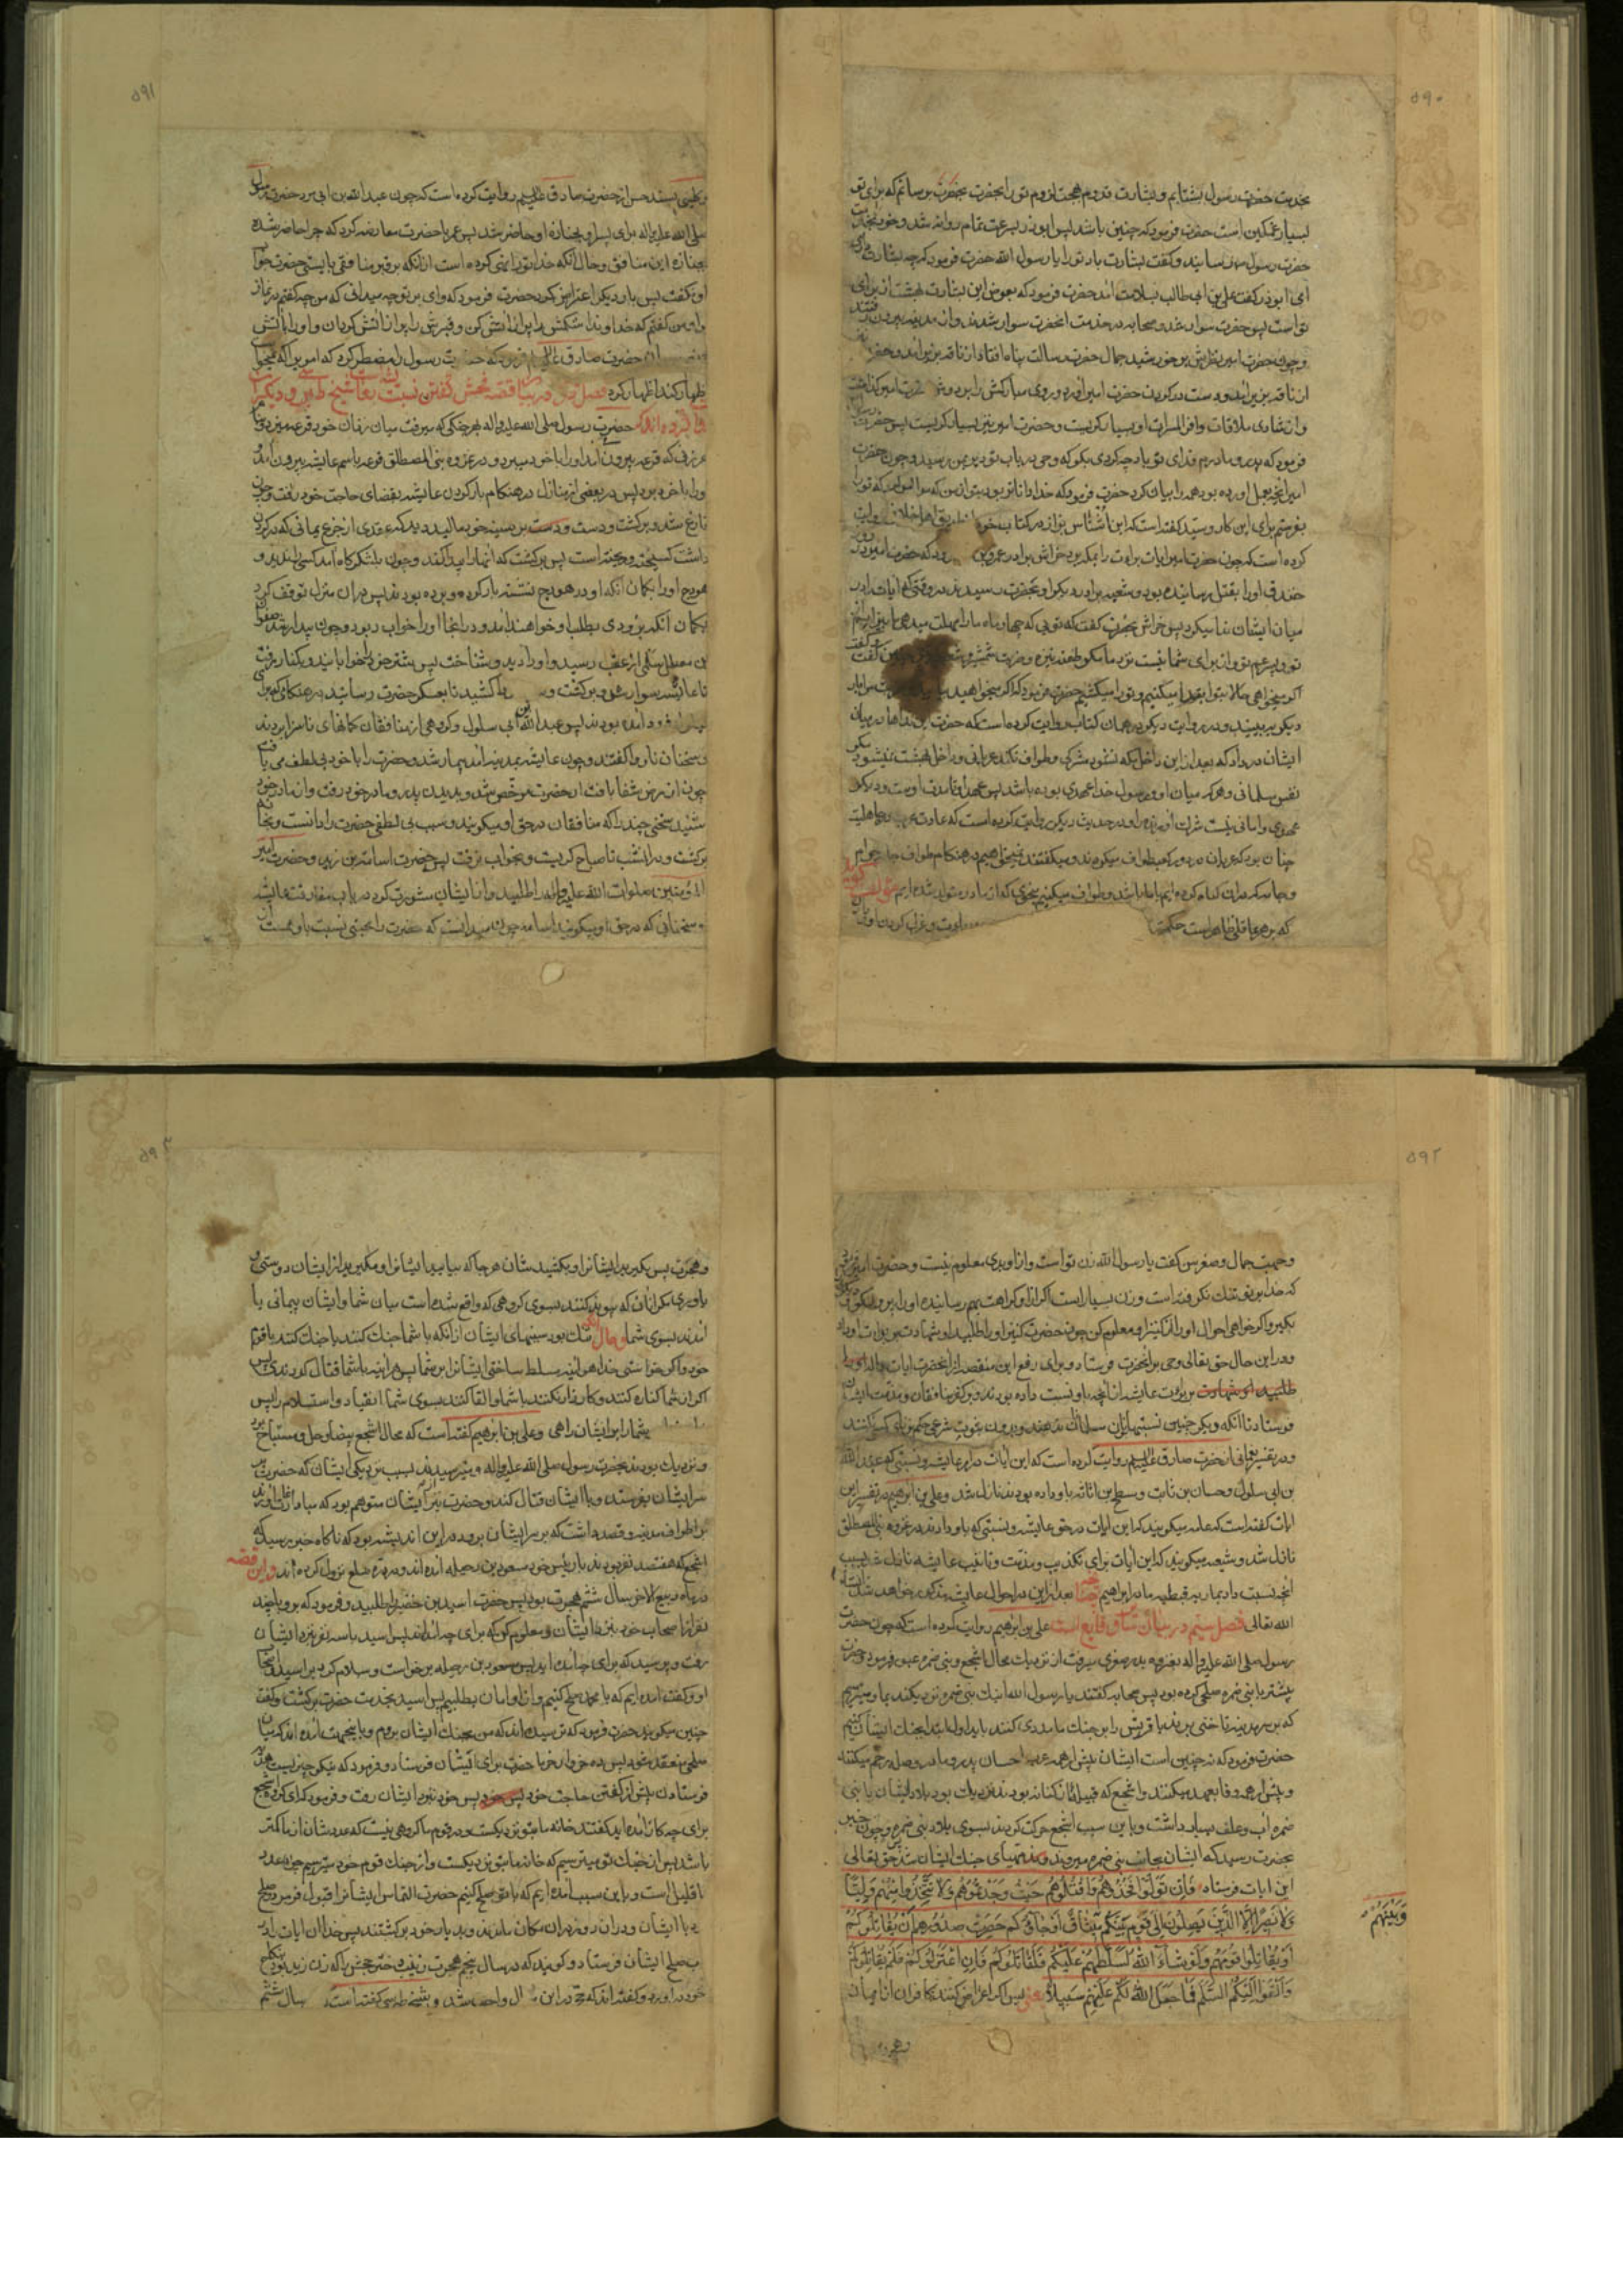 ۵۹۰
بخدمت حضرت رسول بشتابم و بشارت قدوم بهجت لزوم تو را بحضرت برسانم که برای تو
بسیار غمکین است حضرت فرمود که چنین باشد پس ابوذر بسرعت تمام روانه شد و خود بخدمت
حضرت رسول رسانید و کفت بشارت باد تو را یا رسول الله حضرت فرمود که چه بشارت داری
ای ابوذر کفت علی بن ابی طالب بسلامت امد حضرت فرمود که بعوض این بشارت بهشت از برای
تو است پس حضرت سوار شد و صحابه در خدمت انحضرت سوار شدند و از مدینه بیرون رفتند
و چون حضرت امیر نظرش بر خورشید جمال حضرت رسالت پناه افتاد از ناقه بزیر امد و حضرت نیز
از ناقه بزیر امد و دست در کردن حضرت امیر اورد و روی مبارکش را بر دوش حضرت امیر کذاشت
و از شادی ملاقات وافر المسرات او بسیار کریست و حضرت امیر نیز بسیار کریست پس حضرت رسول
فرمود که پدر و مادرم فدای تو باد چه کردی بکو که وحی در باب تو دیر بمن رسید و چون حضرت
امیر انچه بعمل اورده بود همه را بیان کرد حضرت فرمود که خدا داناتر بود بتو از من که مرا امر کرد که تو را
بفرستم برای این کار و سید کفته است که ابن اشناس بزاز در کتاب خود از طریق اهل خلاف روایت
کرده است که چون حضرت امیر ایات برائت را بمکه برد خراش برادر عمرو بن که حضرت امیر در روز
خندق او را بقتل رسانیده بود و شعبه برادر دیکر او بحضرت رسیدند در وقتی که ایات را در
میان ایشان ندا میکرد پس خراش بحضرت کفت که تویی که چهار ماه ما را مهلت میدهی ما بیزاریم از
تو و پسر عم تو و از برای شما نیست نزد ما مکر طعنه نیزه و ضربت شمشیر و شعبه کفت
اکر میخواهی حالا بتو ابتدا میکنیم و تو را میکشیم حضرت فرمود که اکر میخواهید
دیکر ببینید و در روایت دیکر در همان کتاب روایت کرده است که حضرت این نداها در میان
ایشان در داد که بعد از این داخل مکه نشود مشرکی و طواف نکند عریانی و داخل بهشت نمیشود مکر
نفس مسلمانی و هر که میان او و رسول خدا عهدی بوده باشد پس عهد او تا مدت اوست و دیکر
عهدی و امانی نیست شرک اورنده را و در حدیث دیکر روایت کرده است که عادت عرب در جاهلیت
چنان بود که عریان در دور کعبه طواف میکردند و میکفتند نمیخواهیم در هنکام طواف جامهایی
و جامه که دران کناه کرده ایم با ما باشد و طواف میکنیم بنحوی که از مادر متولد شده ایم مؤلف کوید
که بر هر عاقلی ظاهر است حکمت و عزل کردن او در
۵۹۱
و کلینی بسند حسن از حضرت صادق علیه السلام روایت کرده است که چون عبدالله بن ابی مرد حضرت رسول
صلی الله علیه و اله برای پسر او بجنازه او حاضر شد پس عمر با حضرت معارضه کرد که چرا حاضر شده
بجنازه این منافق و حال آنکه خدا تو را نهی کرده است از انکه بر قبر منافقی بایستی حضرت جواب
او نکفت پس بار دیکر اعتراض کرد حضرت فرمود که وای بر تو چه میدانی که من چه کفتم در نماز
او من کفتم که خداوندا شکمش را پر از آتش کن و قبرش را پر از آتش کردان و او را بآتش
حضرت صادق علیه السلام فرمود که حضرت رسول را مضطر کرد که امری را که نمیخواست
اظهار کند اظهار کرد فصل دوم در بیان قصه فحش کفتن نسبت بعایشه شیخ طبرسی و دیکران
ذکر کرده اند که حضرت رسول صلی الله علیه و اله بهر جنکی که میرفت میان زنان خود قرعه میزد و نام
هر زنی که قرعه بیرون آمد او را با خود میبرد و در غزوه بنی المصطلق قرعه باسم عایشه بیرون آمد
او را با خود برد پس در بعضی از منازل در هنکام بار کردن عایشه بقضای حاجت خود رفت و چون
فارغ شد و برکشت و دست بر سینه خود مالید دید که عقدی از جزع یمانی که در کردن
داشت کسیخته و ریخته است پس برکشت که انها را پیدا کند و چون بلشکرکاه امد کسی را ندید و
هودج او را بکمان انکه او در هودج نشسته بار کرده و برده بودند پس در ان منزل توقف کرد
بکمان آنکه بزودی بطلب او خواهند امد و در انجا او را خواب ربود و چون بیدار شد صفوان
بن معطل سلمی از عقب رسید و او را دید و شناخت پس شتر خود را خوابانید و بکنار رفت
تا عایشه سوار شد و برکشت و کشید تا بعسکر حضرت رسانید در هنکامی که برای
فرود آمده بودند پس عبدالله ابن ابی سلول و کروهی از منافقان کمانهای ناسزا بردند
و سخنان ناروا کفتند و چون عایشه بمدینه آمد بیمار شد و حضرت را با خود بی لطف می یافت
چون از مرض شفا یافت از حضرت مرخص شد و بدیدن پدر و مادر خود رفت و از مادر خود
شنید سخنی چند را که منافقان در حق او میکویند و سبب بی لطفی حضرت را دانست و بخانه
برکشت و در انشب تا صباح کریست و بخواب نرفت پس حضرت اسامه بن زید و حضرت امیر
المؤمنین صلوات الله علیه و اله را طلبید و با ایشان مشورت کرد در باب مفارقت عایشه
و سخنانی که در حق او میکویند اسامه چون میدانست که حضرت را محبتی نسبت باو هست
۵۹۲
و حمیت جمال و صغر سن کفت یا رسول الله زن تو است و از او بدی معلوم نیست و حضرت امیر فرمود
که خدا بر تو تنک نکرفته است و زن بسیار است اکر از او کراهت بهم رسانیده او را بر و دیکری
بکیر و اکر خواهی احوال او را از کنیز او معلوم کن چون حضرت کنیز او را طلبید او شهادت بر برائت او داد
و در این حال حق تعالی وحی بر انحضرت فرستاد و برای رفع این منقصه از انحضرت ایات
طلبید او شهادت بر برائت عایشه از انچه باو نسبت داده بودند و بر کفر منافقان و مذمت ایشان
فرستاد تا انکه دیکر چنین نسبتها بزنان مسلمانان ندهند و بدون ثبوت شرعی حکم بر کسی نکنند
و در تفسیر نعمانی از حضرت صادق علیه السلام روایت کرده است که این آیات در امر عایشه و نسبتی که عبدالله
بن ابی سلول و حسان بن ثابت و مسطح بن اثاثه باو داده بودند نازل شد و علی بن ابرهیم در تفسیر این
ایات کفته است که عامه میکویند که این ایات در حق عایشه و نسبتی که باو دادند در غزوه بنی المصطلق
نازل شد و شیعه میکویند که این آیات برای تکذیب و مذمت و تادیب عایشه نازل شد بسبب
انچه نسبت داد بماریه قبطیه مادر ابراهیم بعد از این در احوال عایشه مذکور خواهد شد انشاء
الله تعالی فصل سیم در بیان سایر وقایع است علی بن ابرهیم روایت کرده است که چون حضرت
رسول صلی الله علیه و اله بغزوه بدر صغری میرفت از نزدیک محال اشجع و بنی ضمره عبور فرمود و حضرت
پیشتر با بنی ضمره صلحی کرده بود پس صحابه کفتند یا رسول الله اینک بنی ضمره نزدیکند بما و میترسیم
که بر سر مدینه تاختی برند یا قریش را بر جنک ما مددی کنند باید اول ما ابتدا بجنک ایشان کنیم
حضرت فرمود که نه چنین است ایشان پیش از همه عرب احسان بپدر و مادر و صله رحم میکنند
و پیش از همه وفا بعهد میکنند و اشجع که قبیله از کنانه بودند نزدیک بود بلاد ایشان با بنی
ضمره اب و علف بسیار داشت و باین سبب اشجع حرکت کردند بسوی بلاد بنی ضمره و چون خبر
بحضرت رسید که ایشان بجانب بنی ضمره میروند مهیای جنک ایشان شد حق تعالی
این ایات فرستاد فَاِن تَوَلَّوْا فَخُذُوهُمْ وَاقْتُلُوهُمْ حَیْثُ وَجَدْتُمُوهُمْ وَلَا تَتَّخِذُوا مِنْهُمْ وَلِیًّا
وَلَا نَصِیرًا اِلَّا الَّذِینَ یَصِلُونَ اِلَی قَوْمٍ بَیْنَکُمْ مِیثَاقٌ اَوْ جَاؤُکُمْ حَصِرَتْ صُدُورُهُمْ اَنْ یُقَاتِلُوکُمْ
وَبَیْنَهُمْ
اَوْ یُقَاتِلُوا قَوْمَهُمْ وَلَوْ شَاءَ اللهُ لَسَلَّطَهُمْ عَلَیْکُمْ فَلَقَاتَلُوکُمْ فَاِنِ اعْتَزَلُوکُمْ فَلَمْ یُقَاتِلُوکُمْ
وَاَلْقَوْا اِلَیْکُمُ السَّلَمَ فَمَا جَعَلَ اللهُ لَکُمْ عَلَیْهِمْ سَبِیلًا یعنی پس اکر اعراض کنند کافران از ایمان
وهجرت
۵۹۳
و هجرت پس بکیرید ایشانرا و بکشید شان هر جا که بیابید ایشانرا و مکیرید از ایشان دوستی و
یاوری مکر انان که پیوند کنند بسوی کروهی که واقع شده است میان شما و ایشان پیمانی یا
آمدند بسوی شما و حال انکه تنک بود سینهای ایشان از انکه با شما جنک کنند یا جنک کنند با قوم
خود و اکر خواستی خدا هر اینه مسلط ساختی ایشانرا بر شما پس هر اینه با شما قتال کردندی پس
اکر از شما کناره کنند و کارزار نکنند با شما و القا کنند بسوی شما انقیاد و استسلام را پس
شما را بر ایشان راهی و علی بن ابرهیم کفته است که محال اشجع بیضا و جبل و مستباح بود
و نزدیک بودند بحضرت رسول صلی الله علیه و اله و میترسیدند بسبب نزدیکی ایشان که حضرت بر
سر ایشان بفرستد و با ایشان قتال کند و حضرت نیز از ایشان متوهم بود که مبادا غارت اورند
بر اطراف مدینه و قصد داشت که بر سر ایشان برود در این اندیشه بود که ناکاه خبر رسید که
اشجع که هفتصد نفر بودند با رئیس خود مسعود بن رجیله آمده اند و در دره سلع نزول کرده اند و این قصه
در ماه ربیع الاخر سال ششم هجرت بود پس حضرت اسید بن حضیر را طلبید و فرمود که برو با چند
نفر از اصحاب خود بنزد ایشان و معلوم کن که برای چه آمده اند پس اسید با سه نفر بنزد ایشان
رفت و پرسید که برای چه آمده اید پس مسعود بن رجیله برخواست و سلام کرد بر اسید و اصحاب
او و کفت آمده ایم که با محمد صلح کنیم و از او امان بطلبیم پس اسید بخدمت حضرت برکشت و کفت
چنین میکویند حضرت فرمود که ترسیده اند که من بجنک ایشان بروم و باینجهت آمده اند که میان
صلحی منعقد شود پس ده خروار خرما حضرت برای ایشان فرستاد و فرمود که نیکو چیزیست هدیه
فرستادن پیش از کفتن حاجت خود پس خود بنزد ایشان رفت و فرمود که ای کروه اشجع
برای چه کار آمده اید کفتند خانه ما بتو نزدیکست و در قوم ما کروهی نیست که عددشان از ما کمتر
باشد پس از جنک تو میترسیم که خانه ما بتو نزدیکست و از جنک قوم خود میترسیم چون عدد
ما قلیل است و باین سبب آمده ایم که با تو صلح کنیم حضرت التماس ایشانرا قبول فرمود و صلح
با ایشان و در ان روز در ان مکان ماندند و ببلاد خود برکشتند پس خدا ان ایات را در
صلح ایشان فرستاد و کویند که در سال پنجم هجرت زینب دختر جحش را که زن زید بود بنکاح
خود در آورد و کفته اند که حج در این سال واجب شد و شیخ طبرسی کفته است سال ششم